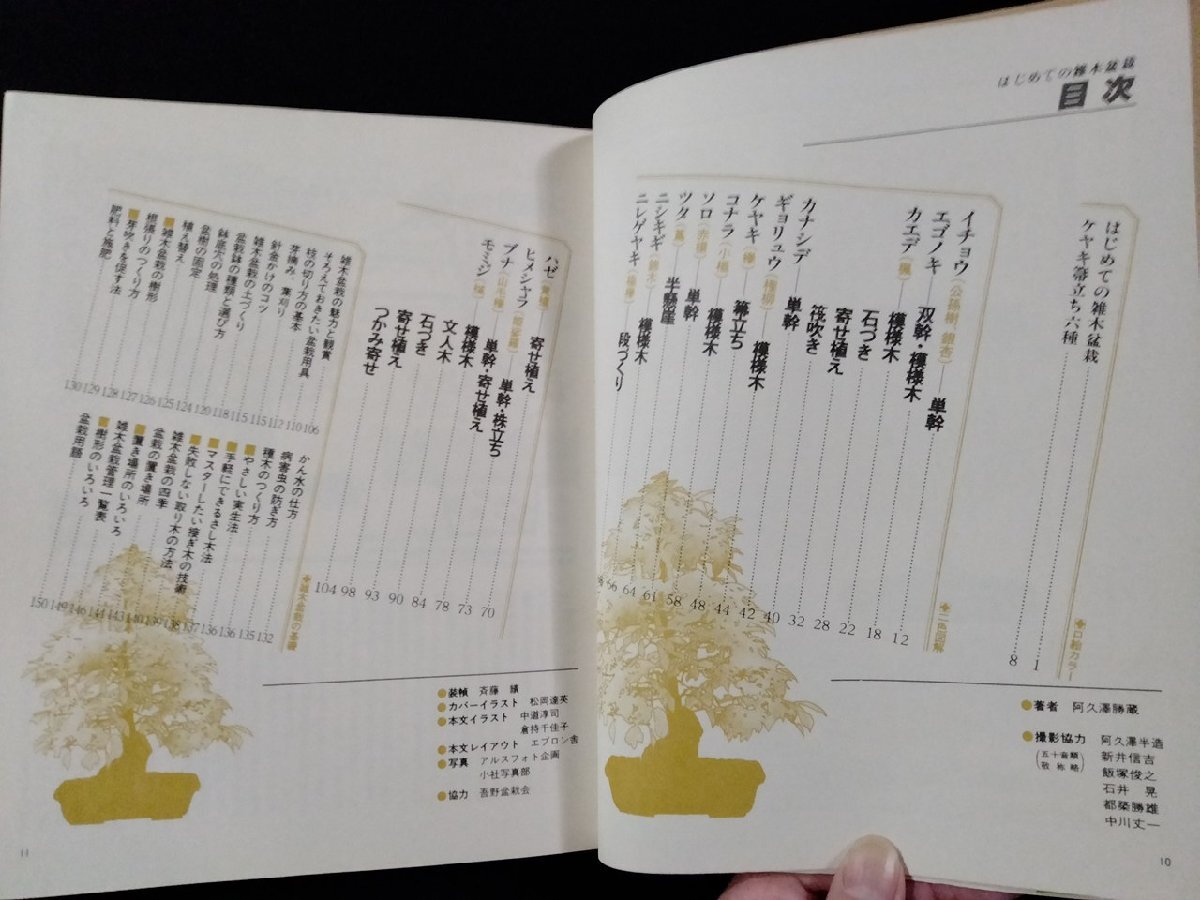 はじめての雑木盆栽
目次
はじめての雑木盆栽 1
ケヤキ箒立ち六種 8
◆口絵カラー
イチョウ（公孫樹、銀杏）──単幹 12
エゴノキ──双幹・模様木 18
カエデ（楓）──模様木 22
石づき 28
寄せ植え 32
筏吹き 40
カナシデ──単幹 42
ギョリュウ（檉柳）──模様木 44
ケヤキ（欅）──箒立ち 48
コナラ（小楢）──模様木 58
ソロ（赤四手）──単幹 61
ツタ（蔦）──半懸崖 64
ニシキギ（錦木）──模様木 66
ニレゲヤキ（楡欅）──段づくり 68
◆二色図解
●著者 阿久澤勝蔵
●撮影協力 阿久澤半造
（五十音順 敬称略） 新井信吉
飯塚俊之
石井 晃
都築勝雄
中川丈一
10
ハゼ（黄櫨）──寄せ植え 70
ヒメシャラ──単幹・株立ち 73
ブナ（山毛欅）──単幹・寄せ植え 78
モミジ（椛）──模様木 84
文人木 90
石づき 93
寄せ植え 98
つかみ寄せ 104
◆雑木盆栽の基礎
雑木盆栽の魅力と観賞 106
そろえておきたい盆栽用具 110
枝の切り方の基本 112
芽摘み 葉刈り 115
針金かけのコツ 115
雑木盆栽の土づくり 118
盆栽鉢の種類と選び方 120
鉢底穴の処理 124
盆樹の固定 125
植え替え 126
雑木盆栽の樹形 127
根張りのつくり方 128
芽吹きを促す法 129
肥料と施肥 130
かん水の仕方 132
病害虫の防ぎ方 135
種木のつくり方 136
やさしい実生法 136
手軽にできるさし木法 137
マスターしたい接ぎ木の技術 138
失敗しない取り木の方法 139
雑木盆栽の四季 140
盆栽の置き場所 143
置き場所のいろいろ 144
雑木盆栽管理一覧表 146
樹形のいろいろ 149
盆栽用語 150
●装幀 斉藤 績
●カバーイラスト 松岡達英
●本文イラスト 中道淳司
倉持千佳子
●本文レイアウト エプロン舎
●写真 アルスフォト企画
小社写真部
●協力 吾野盆栽会
11